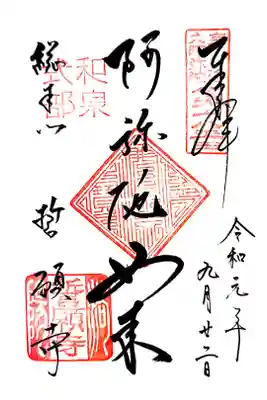 奉拝
令和元年
九月廿二日
阿弥陀如来
和泉
式部
総本山
誓願寺
誓願寺